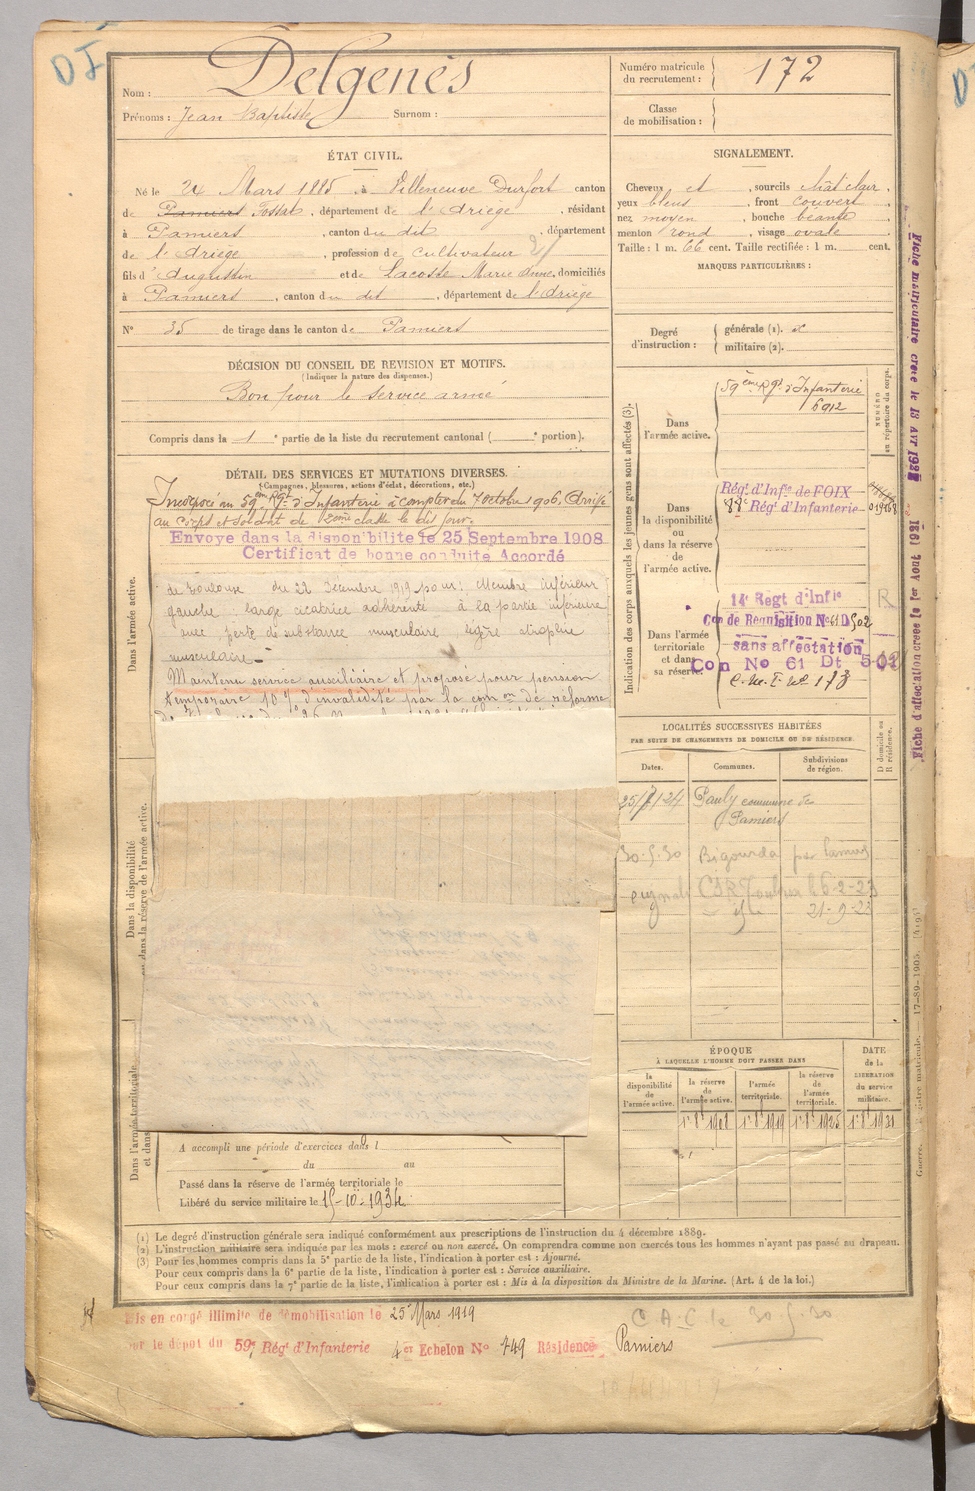 DI
Nom : Delgenès
Prénoms : Jean Baptiste Surnom :
Numéro matricule du recrutement : 172
Classe de mobilisation :
ÉTAT CIVIL.
Né le 24 Mars 1885 à Villeneuve Durfort canton
de Pamiers Fossat, département de l'Ariège, résidant
à Pamiers, canton du dit, département
de l'Ariège, profession de cultivateur
fils d'Augustin et de Lacoste Marie Anne, domiciliés
à Pamiers, canton du dit, département de l'Ariège
N° 35 de tirage dans le canton de Pamiers
DÉCISION DU CONSEIL DE REVISION ET MOTIFS.
(Indiquer la nature des dispenses.)
Bon pour le service armé
Compris dans la 1e partie de la liste du recrutement cantonal ( e portion).
DÉTAIL DES SERVICES ET MUTATIONS DIVERSES.
(Campagnes, blessures, actions d'éclat, décorations, etc.)
Incorporé au 59ème Rgt d'Infanterie à compter du 7 octobre 1906, Arrivé
au corps et soldat de 2ème classe le dit jour.
Envoye dans la disponibilite le 25 Septembre 1908
Certificat de bonne conduite Accordé
de Toulouse du 22 Décembre 1919 pour : Membre inférieur
gauche : large cicatrice adhérente à la partie inférieure
avec perte de substance musculaire, légère atrophie
musculaire.
Maintenu service auxiliaire et proposé pour pension
temporaire 10 % d'invalidité par la com on de réforme
Dans l'armée active.
Dans la disponibilité
ou dans la réserve de l'armée active.
Dans l'armée territoriale
et dans
A accompli une période d'exercices dans l
du au
Passé dans la réserve de l'armée territoriale le
Libéré du service militaire le 15-10-1934
SIGNALEMENT.
Cheveux et, sourcils chât clair,
yeux bleus, front couvert,
nez moyen, bouche béante,
menton rond, visage ovale
Taille : 1 m. 66 cent. Taille rectifiée : 1 m. cent.
MARQUES PARTICULIÈRES :
Degré d'instruction : générale (1). x
militaire (2).
Indication des corps auxquels les jeunes gens sont affectés (3).
NUMÉRO au répertoire du corps.
Dans l'armée active.
59ème Rgt d'Infanterie
6912
Dans la disponibilité ou dans la réserve de l'armée active.
Régt d'Infie de FOIX
88e Régt d'Infanterie
Dans l'armée territoriale et dans sa réserve.
14e Regt d'Infie
Con de Requisition N° 61 D 502
sans affectation
Con No 61 Dt 502
R
C.M.I. N° 173
LOCALITÉS SUCCESSIVES HABITÉES
PAR SUITE DE CHANGEMENTS DE DOMICILE OU DE RÉSIDENCE.
Dates. Communes. Subdivisions de région. D domicile ou R résidence.
Pauly commune de
Pamiers
30.5.30 Bigourda par Pamiers
21-9-23
ÉPOQUE
À LAQUELLE L'HOMME DOIT PASSER DANS
la disponibilité de l'armée active. la réserve de l'armée active. l'armée territoriale. la réserve de l'armée territoriale.
DATE de la LIBÉRATION du service militaire.
Fiche matriculaire créée le 13 Avr
Fiche d'affectation créée le 1er Aout 1931
(1) Le degré d'instruction générale sera indiqué conformément aux prescriptions de l'instruction du 4 décembre 1889.
(2) L'instruction militaire sera indiquée par les mots : exercé ou non exercé. On comprendra comme non exercés tous les hommes n'ayant pas passé au drapeau.
(3) Pour les hommes compris dans la 5e partie de la liste, l'indication à porter est : Ajourné.
Pour ceux compris dans la 6e partie de la liste, l'indication à porter est : Service auxiliaire.
Pour ceux compris dans la 7e partie de la liste, l'indication à porter est : Mis à la disposition du Ministre de la Marine. (Art. 4 de la loi.)
Mis en congé illimité de démobilisation le 25 Mars 1919
sur le dépot du 59e Régt d'Infanterie 4er Echelon N° 749 Résidence Pamiers
C A C le 30.5.30